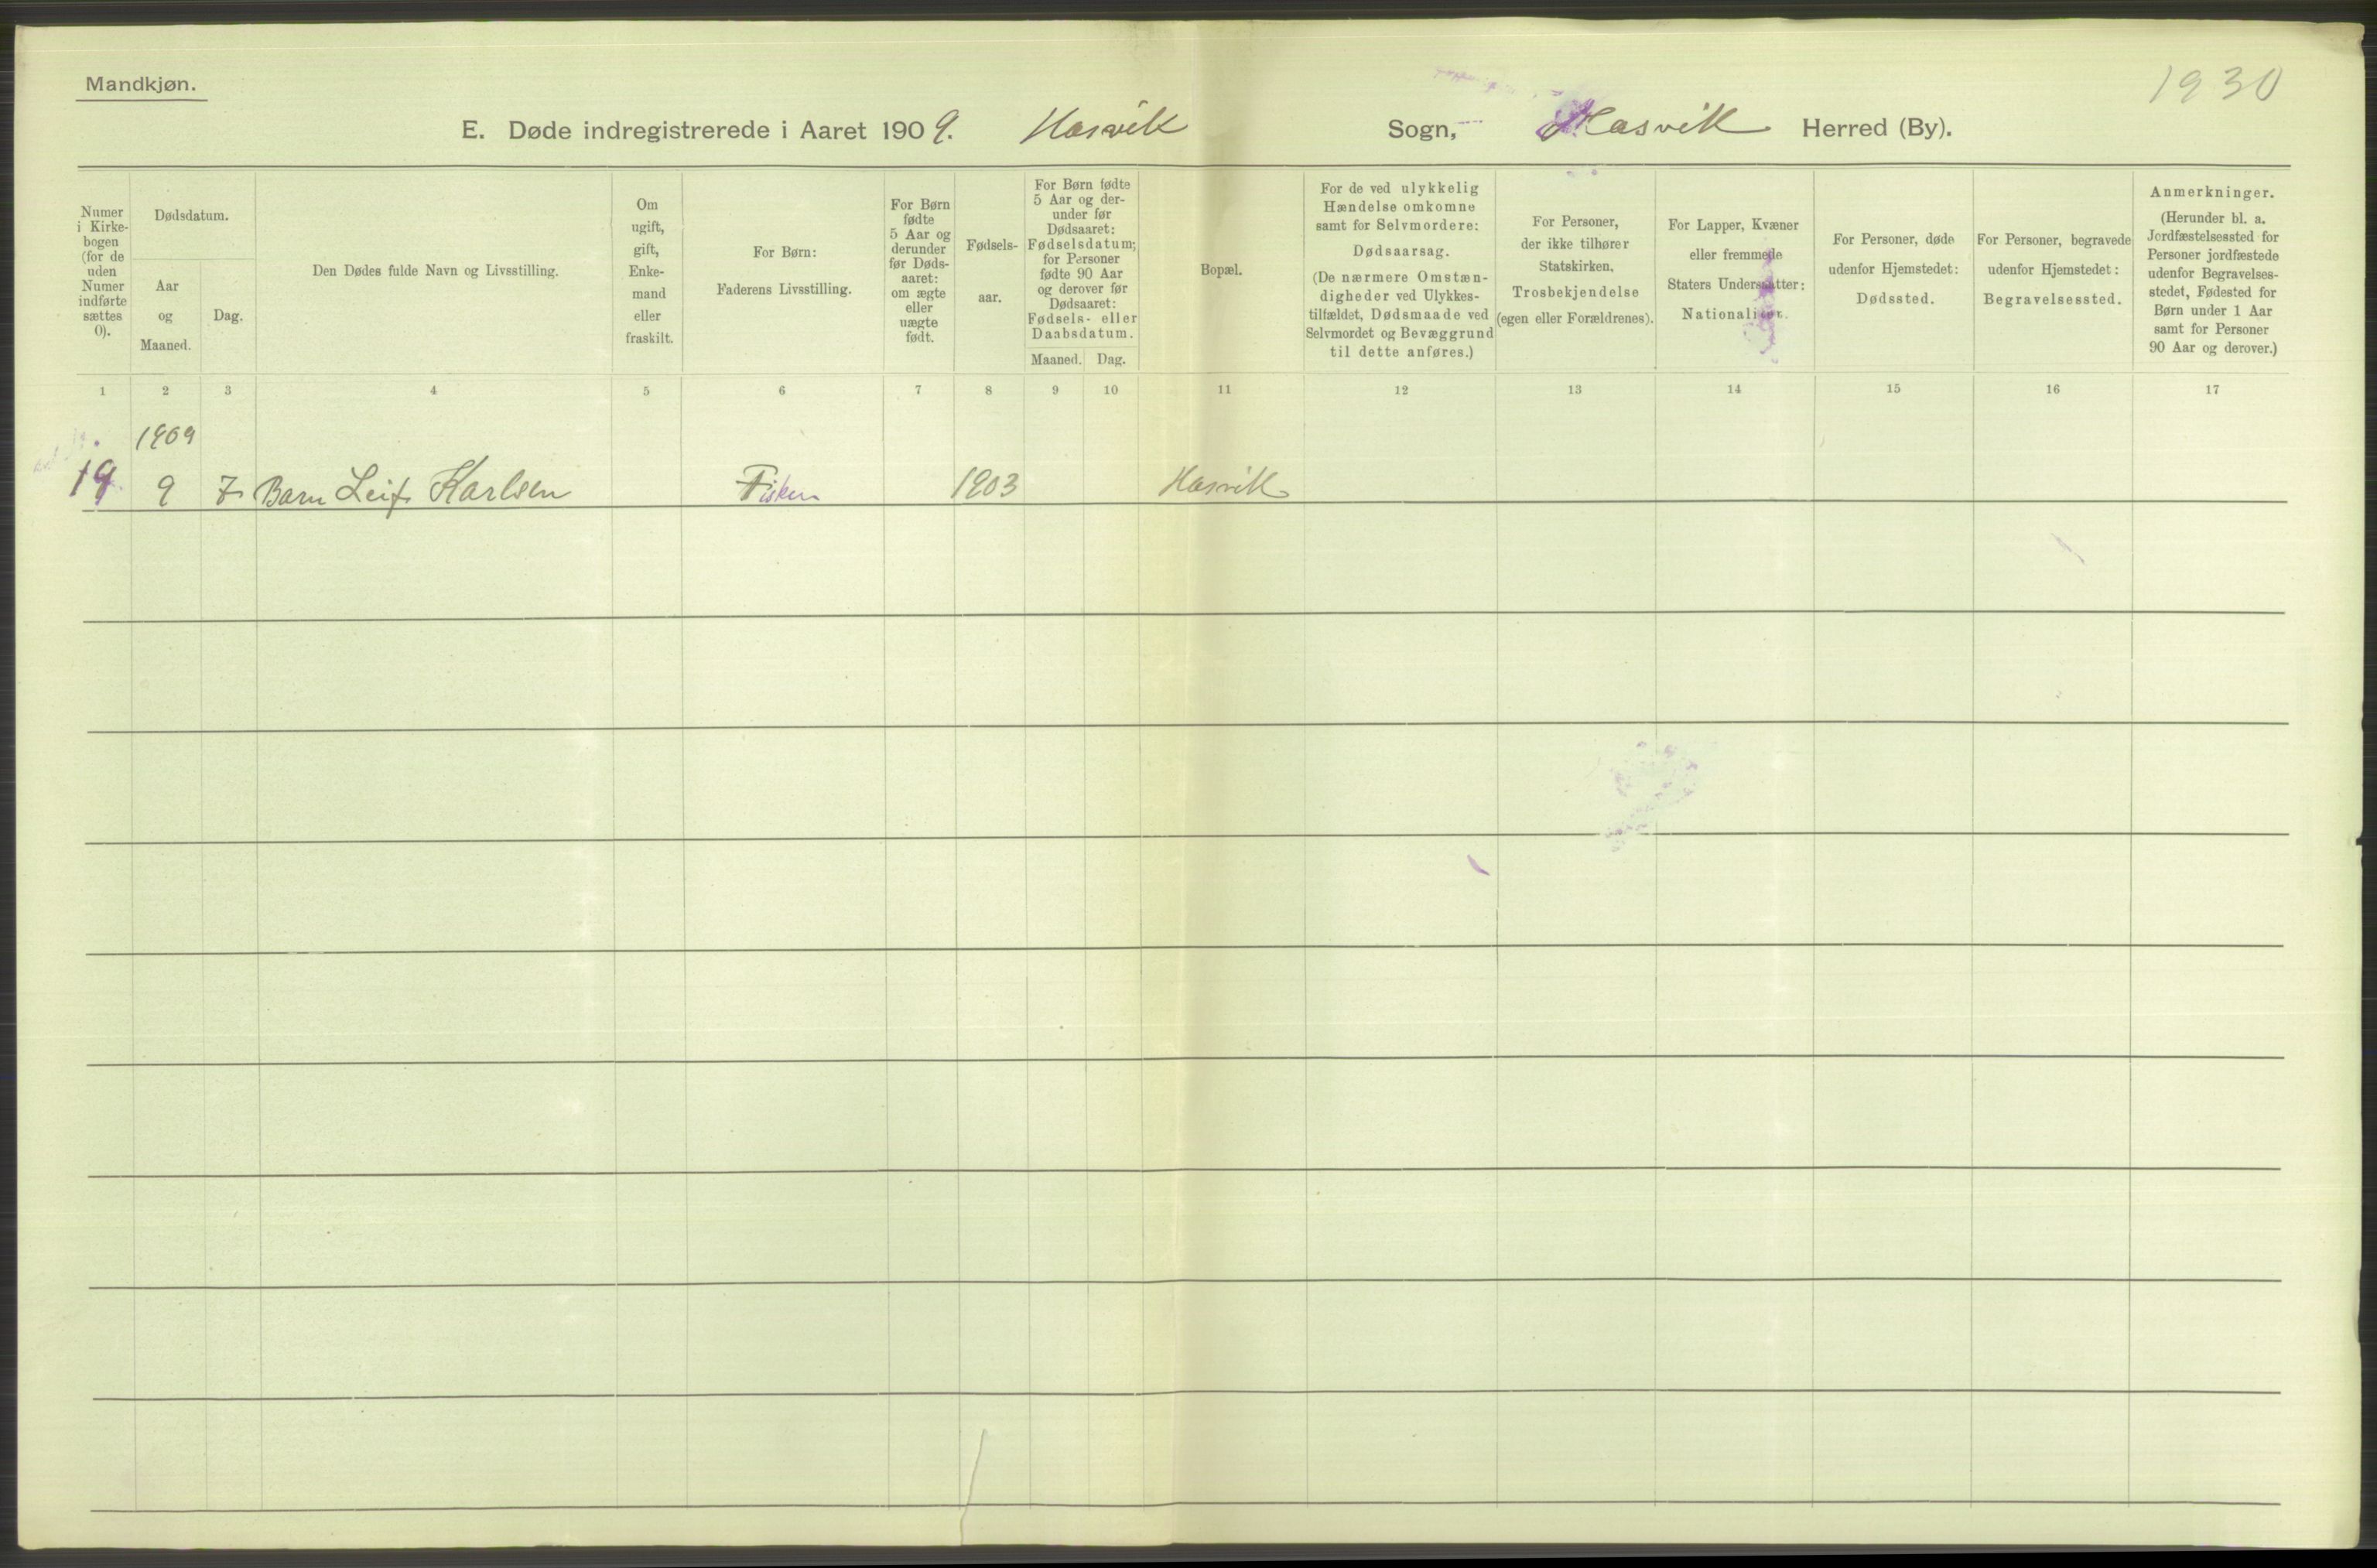 Mandkjøn.
1930
E. Døde indregistrerede i Aaret 1909. Hasvik Sogn, Hasvik Herred (By).
Numer
i Kirke-
bogen
(for de
uden
Numer
indførte
sættes
0).
Dødsdatum.
Aar
og
Maaned.
Dag.
Den Dødes fulde Navn og Livsstilling.
Om
ugift,
gift,
Enke-
mand
eller
fraskilt.
For Børn:
Faderens Livsstilling.
For Børn
fødte
5 Aar og
derunder
før Døds-
aaret:
om ægte
eller
uægte
født.
Fødsels-
aar.
For Børn fødte
5 Aar og der-
under før
Dødsaaret:
Fødselsdatum;
for Personer
fødte 90 Aar
og derover før
Dødsaaret:
Fødsels- eller
Daabsdatum.
Maaned. Dag.
Bopæl.
For de ved ulykkelig
Hændelse omkomne
samt for Selvmordere:
Dødsaarsag.
(De nærmere Omstæn-
digheder ved Ulykkes-
tilfældet, Dødsmaade ved
Selvmordet og Bevæggrund
til dette anføres.)
For Personer,
der ikke tilhører
Statskirken,
Trosbekjendelse
(egen eller Forældrenes).
For Lapper, Kvæner
eller fremmede
Staters Undersaatter:
Nationalitet.
For Personer, døde
udenfor Hjemstedet:
Dødssted.
For Personer, begravede
udenfor Hjemstedet:
Begravelsessted.
Anmerkninger.
(Herunder bl. a.
Jordfæstelsessted for
Personer jordfæstede
udenfor Begravelses-
stedet, Fødested for
Børn under 1 Aar
samt for Personer
90 Aar og derover.)
1 2 3 4 5 6 7 8 9 10 11 12 13 14 15 16 17
1909
19 9 7 Barn Leif Karlsen Fisker 1903 Hasvik